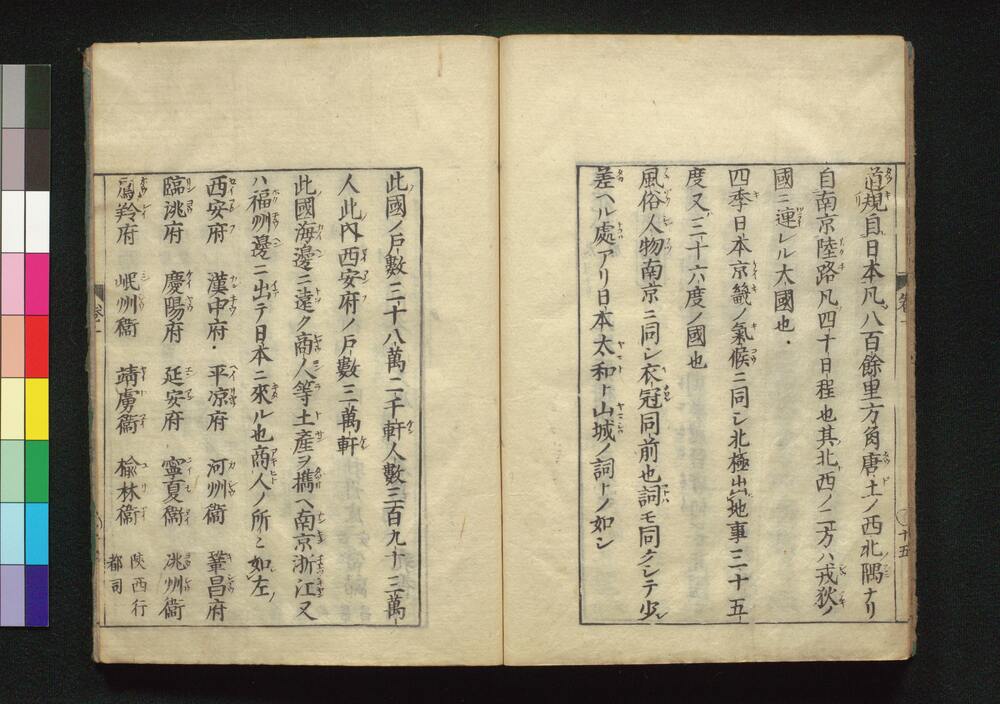 道規自日本凡八百餘里方角唐土ノ西北隅ナリ
自南京陸路凡四十日程也其北西ノ二方ハ戎狄ノ
國ニ連レル大國也
四季日本京畿ノ氣候ニ同シ北極出地事三十五
度又三十六度ノ國也
風俗人物南京ニ同シ衣冠同前也詞モ同クシテ少
差ヘル處アリ日本太和ト山城ノ詞トノ如シ
十五
此國ノ戸數三十八萬二千軒人數三百九十三萬
人此内西安府ノ戸數三萬軒
此國海邊ニ遠ク商人等土産ヲ携ヘ南京浙江又
ハ福州邊ニ出テ日本ニ來ル也商人ノ所々如左
西安府 漢中府 平凉府 河州衞 鞏昌府
臨洮府 慶陽府 延安府 寧夏衞 洮州衞
岷州衞 靖虜衞 榆林衞 陝西行都司